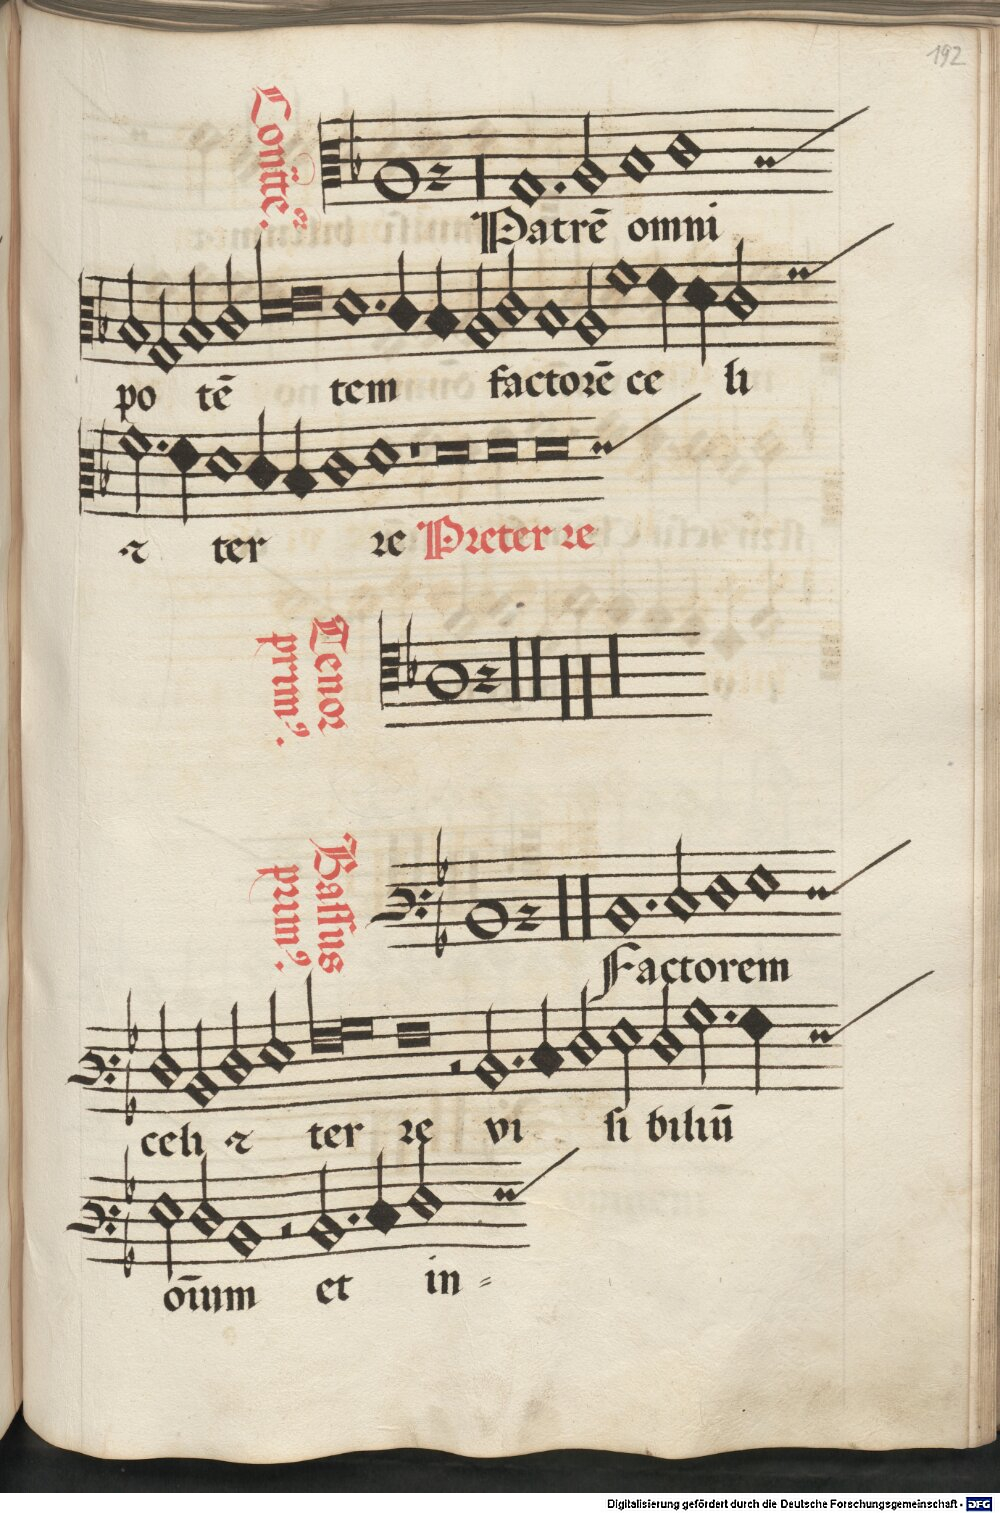 192
Patrē omni
po tē tem factorē ce li
⁊ ter re Preter re
Tenor
prim⁹.
Bassus
prim⁹.
Factorem
celi ⁊ ter re vi si biliū
oīum et in =
Digitalisierung gefördert durch die Deutsche Forschungsgemeinschaft - DFG